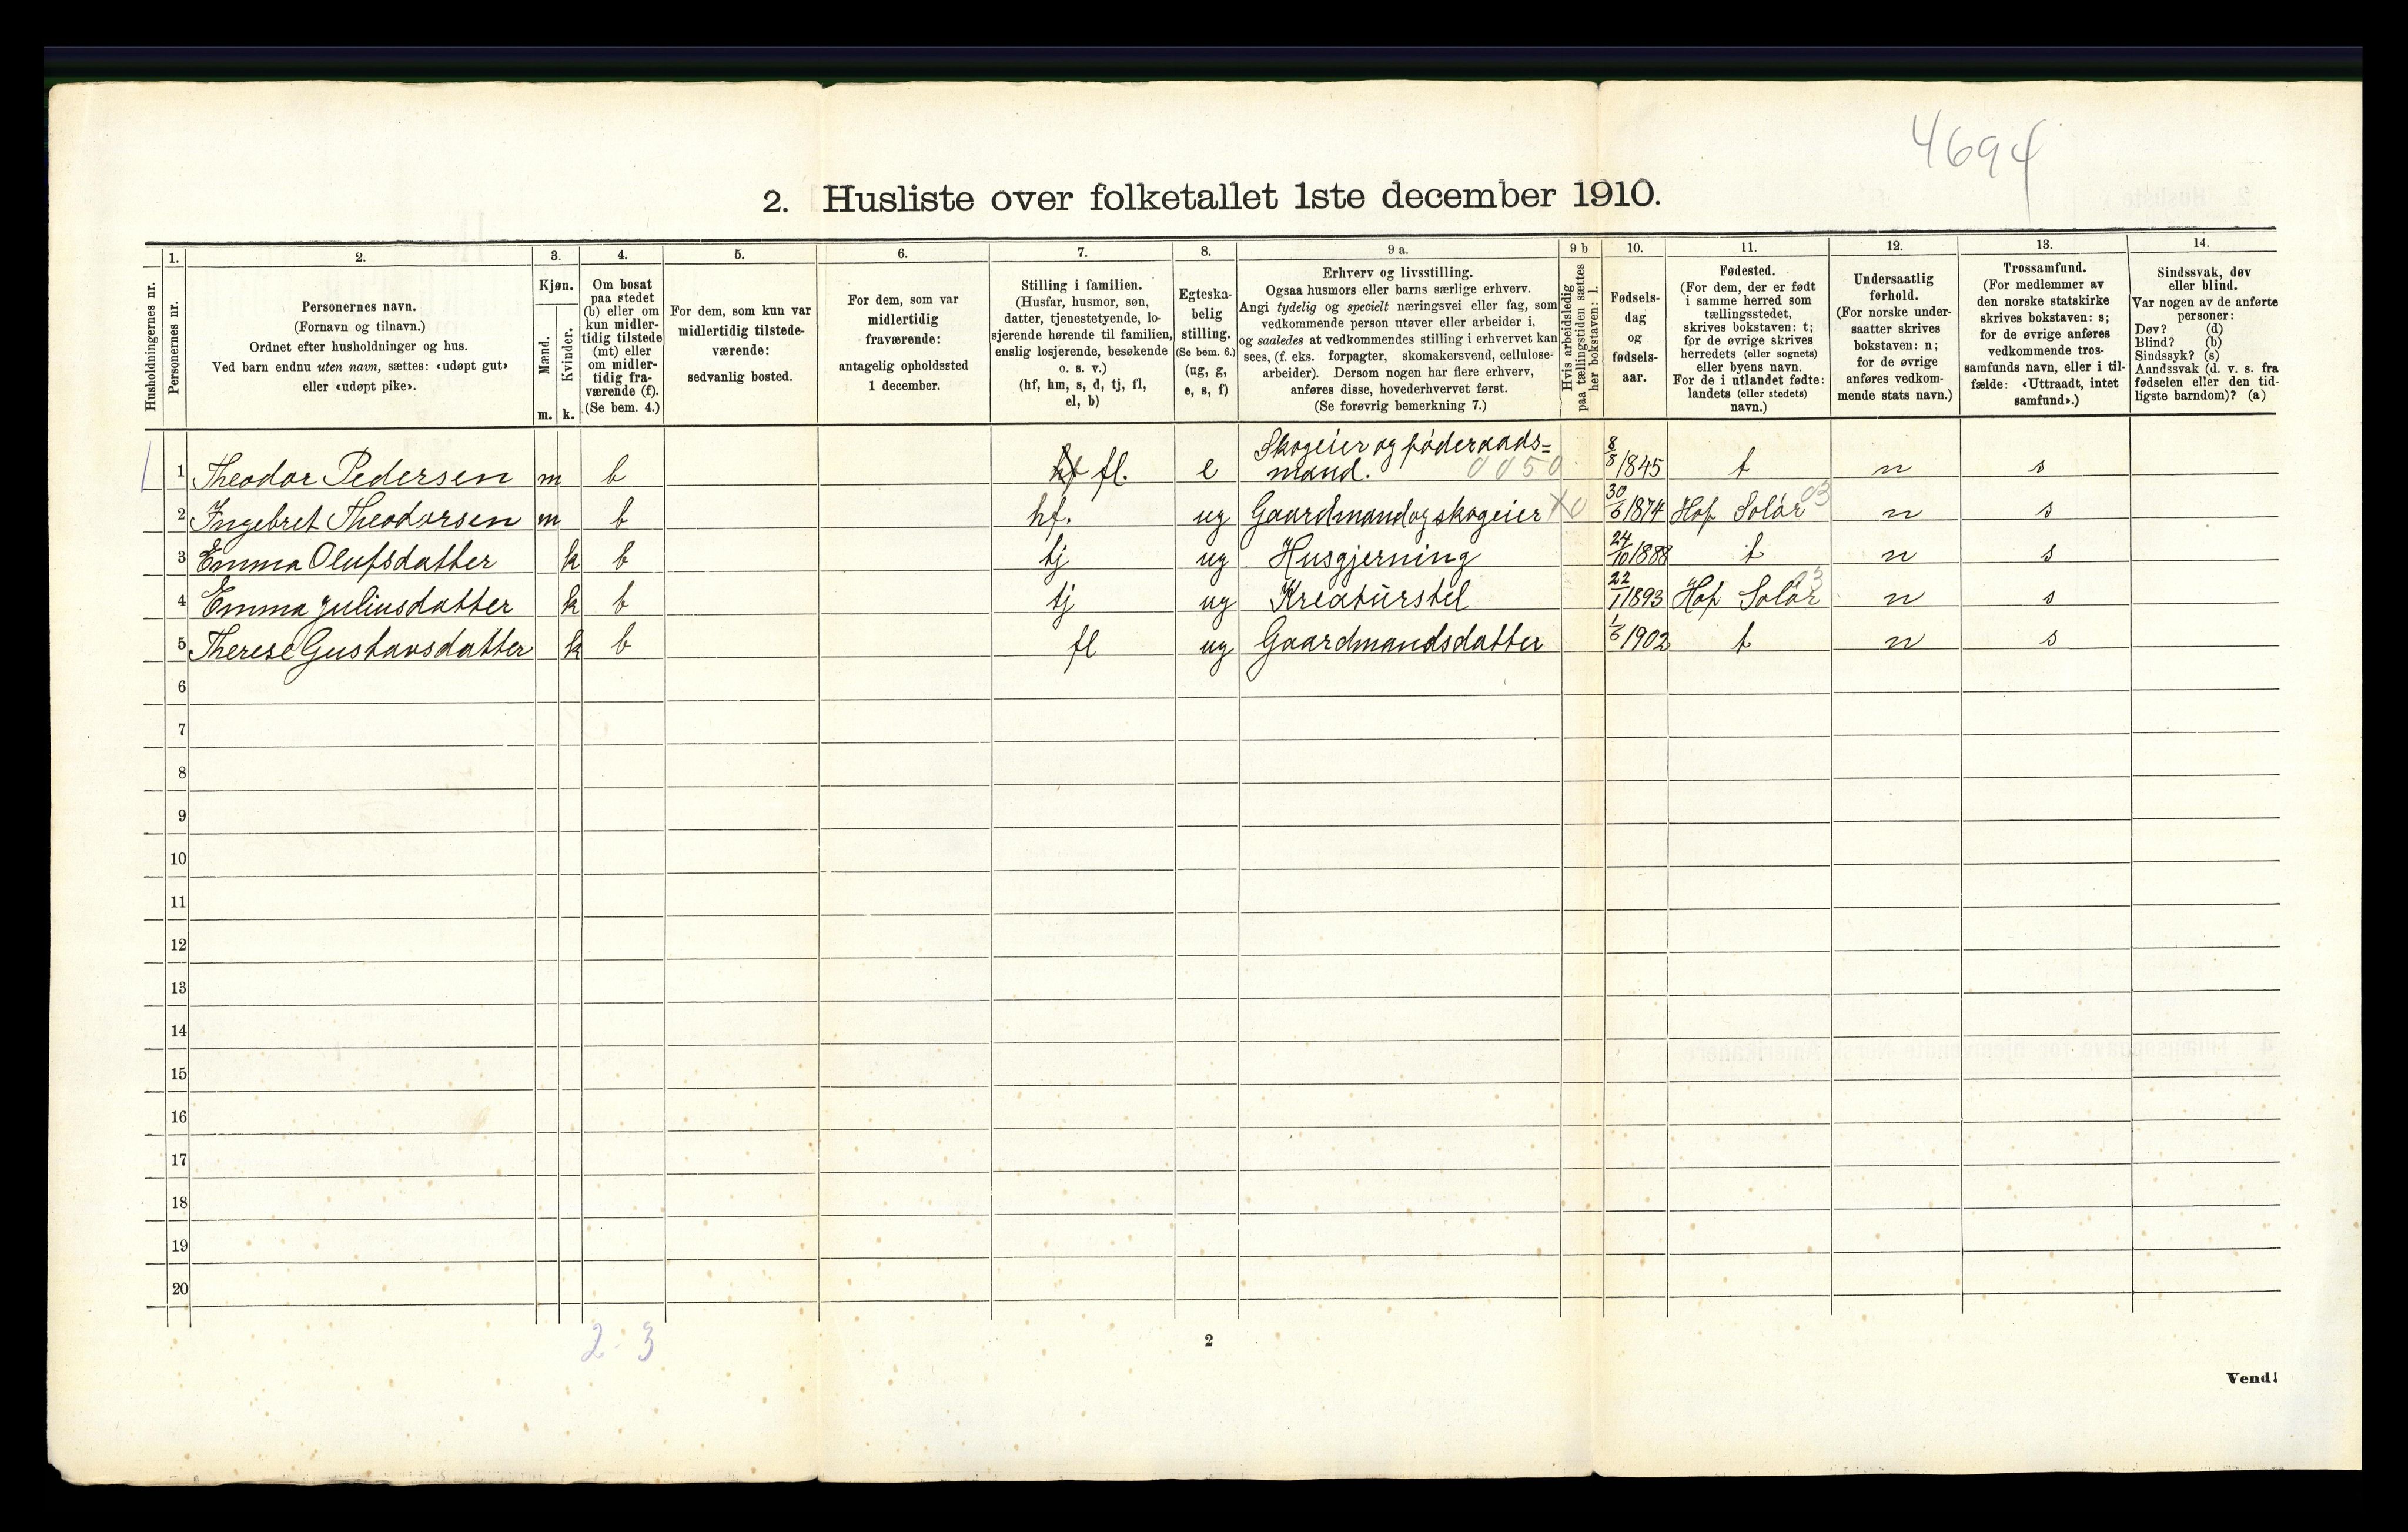 4694
2. Husliste over folketallet 1ste december 1910.
Husholdningernes nr.
1.
Personernes nr.
2.
Personernes navn.
(Fornavn og tilnavn.)
Ordnet efter husholdninger og hus.
Ved barn endnu uten navn, sættes: «udøpt gut»
eller «udøpt pike».
3.
Kjøn.
Mænd.
Kvinder.
m. k.
4.
Om bosat
paa stedet
(b) eller om
kun midler-
tidig tilstede
(mt) eller
om midler-
tidig fra-
værende (f).
(Se bem. 4.)
5.
For dem, som kun var
midlertidig tilstede-
værende:
sedvanlig bosted.
6.
For dem, som var
midlertidig
fraværende:
antagelig opholdssted
1 december.
7.
Stilling i familien.
(Husfar, husmor, søn,
datter, tjenestetyende, lo-
sjerende hørende til familien,
enslig losjerende, besøkende
o. s. v.)
(hf, hm, s, d, tj, fl,
el, b)
8.
Egteska-
belig
stilling.
(Se bem. 6.)
(ug, g,
e, s, f)
9 a.
Erhverv og livsstilling.
Ogsaa husmors eller barns særlige erhverv.
Angi tydelig og specielt næringsvei eller fag, som
vedkommende person utøver eller arbeider i,
og saaledes at vedkommendes stilling i erhvervet kan
sees, (f. eks. forpagter, skomakersvend, cellulose-
arbeider). Dersom nogen har flere erhverv,
anføres disse, hovederhvervet først.
(Se forøvrig bemerkning 7.)
9 b
Hvis arbeidsledig
paa tællingstiden sættes
her bokstaven: l.
10.
Fødsels-
dag
og
fødsels-
aar.
11.
Fødested.
(For dem, der er født
i samme herred som
tællingsstedet,
skrives bokstaven: t;
for de øvrige skrives
herredets (eller sognets)
eller byens navn.
For de i utlandet fødte:
landets (eller stedets)
navn.)
12.
Undersaatlig
forhold.
(For norske under-
saatter skrives
bokstaven: n;
for de øvrige
anføres vedkom-
mende stats navn.)
13.
Trossamfund.
(For medlemmer av
den norske statskirke
skrives bokstaven: s;
for de øvrige anføres
vedkommende tros-
samfunds navn, eller i til-
fælde: «Uttraadt, intet
samfund».)
14.
Sindssvak, døv
eller blind.
Var nogen av de anførte
personer:
Døv? (d)
Blind? (b)
Sindssyk? (s)
Aandssvak (d. v. s. fra
fødselen eller den tid-
ligste barndom)? (a)
1 Theodor Pedersen m b hf fl. e Skogeier og føderaads=
mand. 0050 8/8 1845 t n s
2 Ingebret Theodorsen m b hf. ug Gaardmand og skogeier X0 30/6 1874 Hof Solør 03 n s
3 Emma Olufsdatter k b tj ug Husgjerning 24/10 1888 t n s
4 Emma Juliusdatter k b tj ug Kreaturstel 22/1 1893 Hof Solør 03 n s
5 Therese Gustavsdatter k b fl ug Gaardmandsdatter 1/6 1902 t n s
6
7
8
9
10
11
12
13
14
15
16
17
18
19
20
2-3
2
Vend!